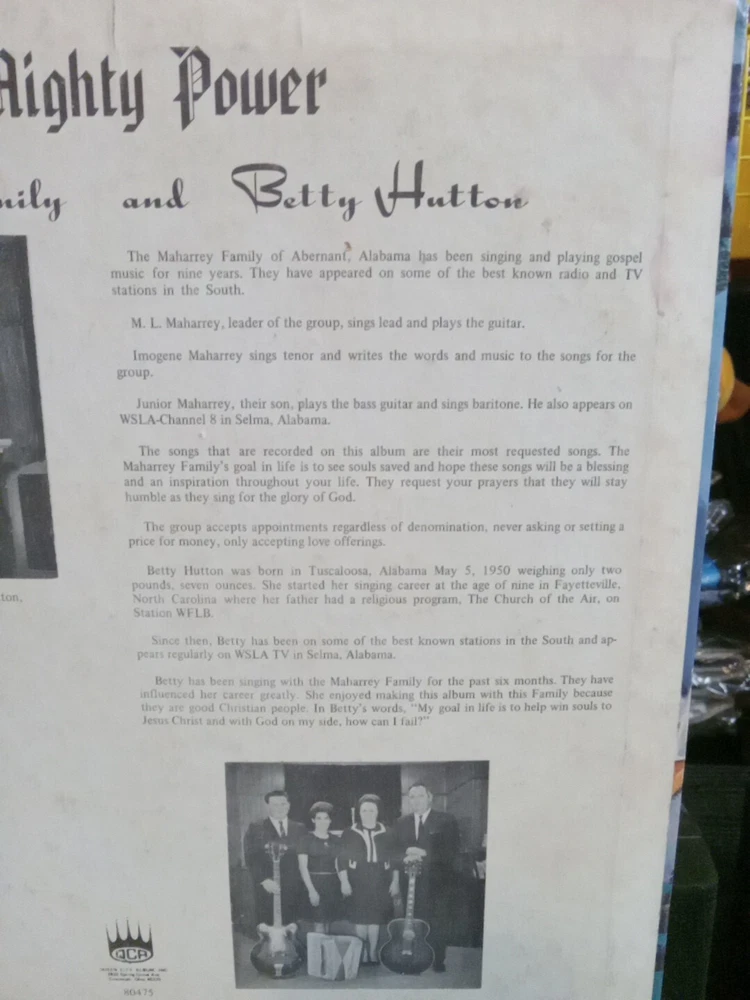 Mighty Power
mily and Betty Hutton
The Maharrey Family of Abernant, Alabama has been singing and playing gospel
music for nine years. They have appeared on some of the best known radio and TV
stations in the South.
M. L. Maharrey, leader of the group, sings lead and plays the guitar.
Imogene Maharrey sings tenor and writes the words and music to the songs for the
group.
Junior Maharrey, their son, plays the bass guitar and sings baritone. He also appears on
WSLA-Channel 8 in Selma, Alabama.
The songs that are recorded on this album are their most requested songs. The
Maharrey Family's goal in life is to see souls saved and hope these songs will be a blessing
and an inspiration throughout your life. They request your prayers that they will stay
humble as they sing for the glory of God.
The group accepts appointments regardless of denomination, never asking or setting a
price for money, only accepting love offerings.
ton,
Betty Hutton was born in Tuscaloosa, Alabama May 5, 1950 weighing only two
pounds, seven ounces. She started her singing career at the age of nine in Fayetteville,
North Carolina where her father had a religious program, The Church of the Air, on
Station WFLB.
Since then, Betty has been on some of the best known stations in the South and ap-
pears regularly on WSLA TV in Selma, Alabama.
Betty has been singing with the Maharrey Family for the past six months. They have
influenced her career greatly. She enjoyed making this album with this Family because
they are good Christian people. In Betty's words, "My goal in life is to help win souls to
Jesus Christ and with God on my side, how can I fail?"
QCA
80475